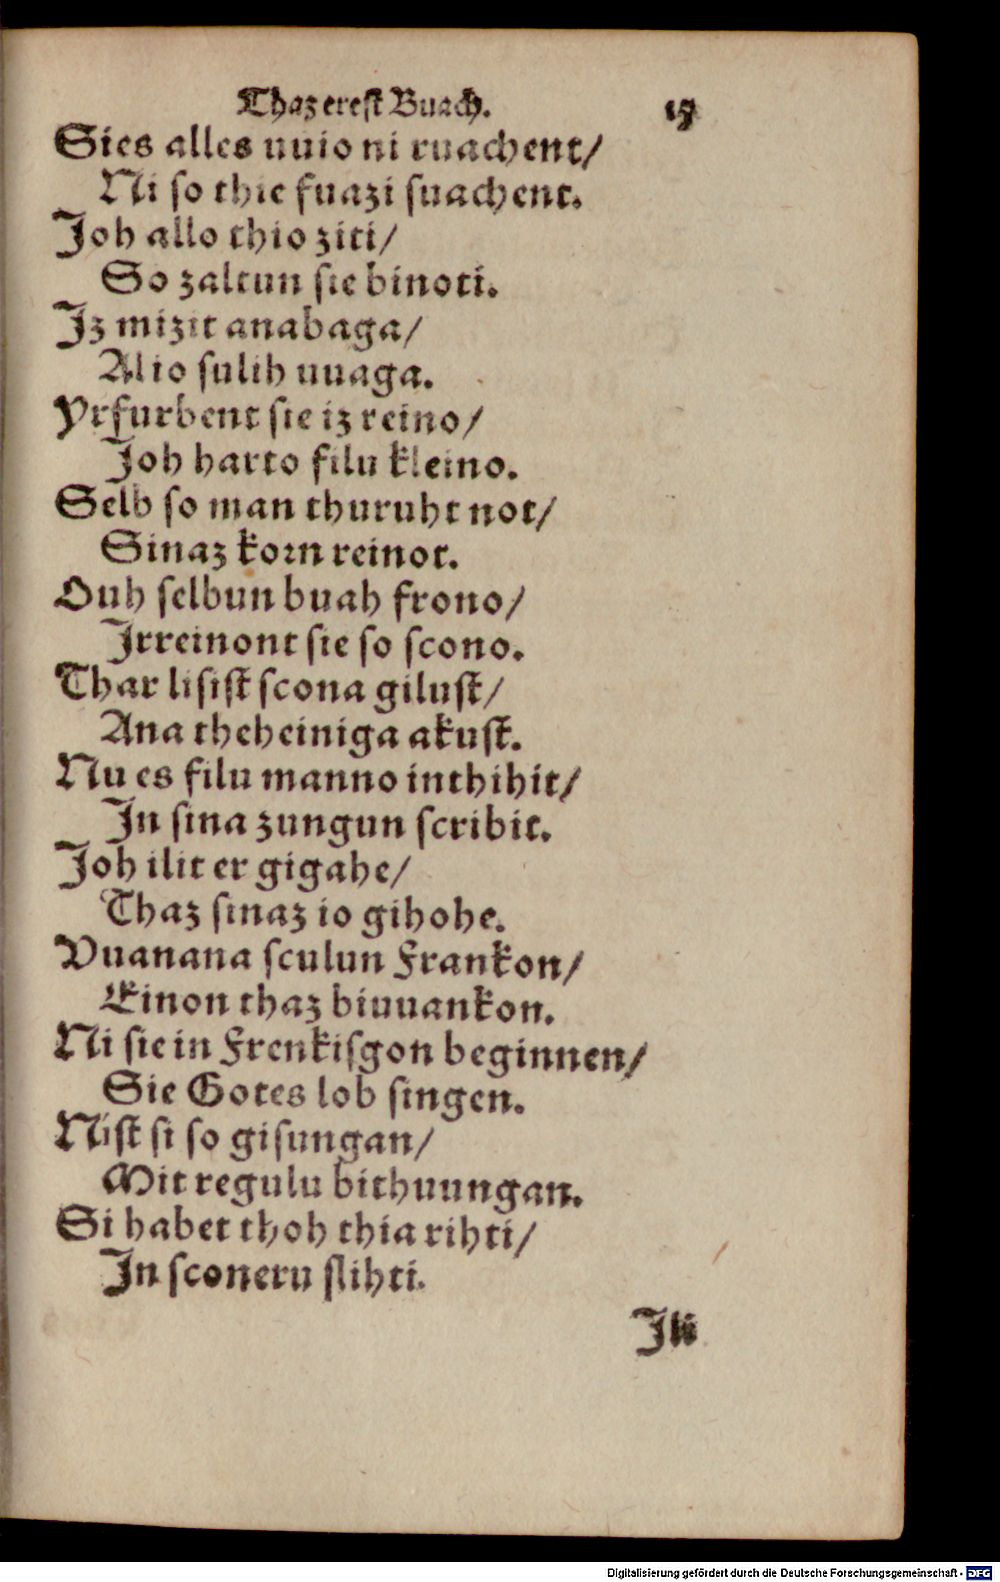 Thaz erest Buach. 17
Sies alles uuio ni ruachent/
Ni so thie fuazi suachent.
Joh allo thio ziti/
So zaltun sie binoti.
Jz mizit anabaga/
Al io sulih uuaga.
Yrfurbent sie iz reino/
Joh harto filu kleino.
Selb so man thuruht not/
Sinaz korn reinot.
Ouh selbun buah frono/
Jrreinont sie so scono.
Thar lisist scona gilust/
Ana theheiniga akust.
Nu es filu manno inthihit/
Jn sina zungun scribit.
Joh ilit er gigahe/
Thaz sinaz io gihohe.
Vuanana sculun Frankon/
Einon thaz biuuankon.
Ni sie in Frenkisgon beginnen/
Sie Gotes lob singen.
Nist si so gisungan/
Mit regulu bithuungan.
Si habet thoh thia rihti/
Jn sconeru slihti.
Jli
Digitalisierung gefördert durch die Deutsche Forschungsgemeinschaft - DFG